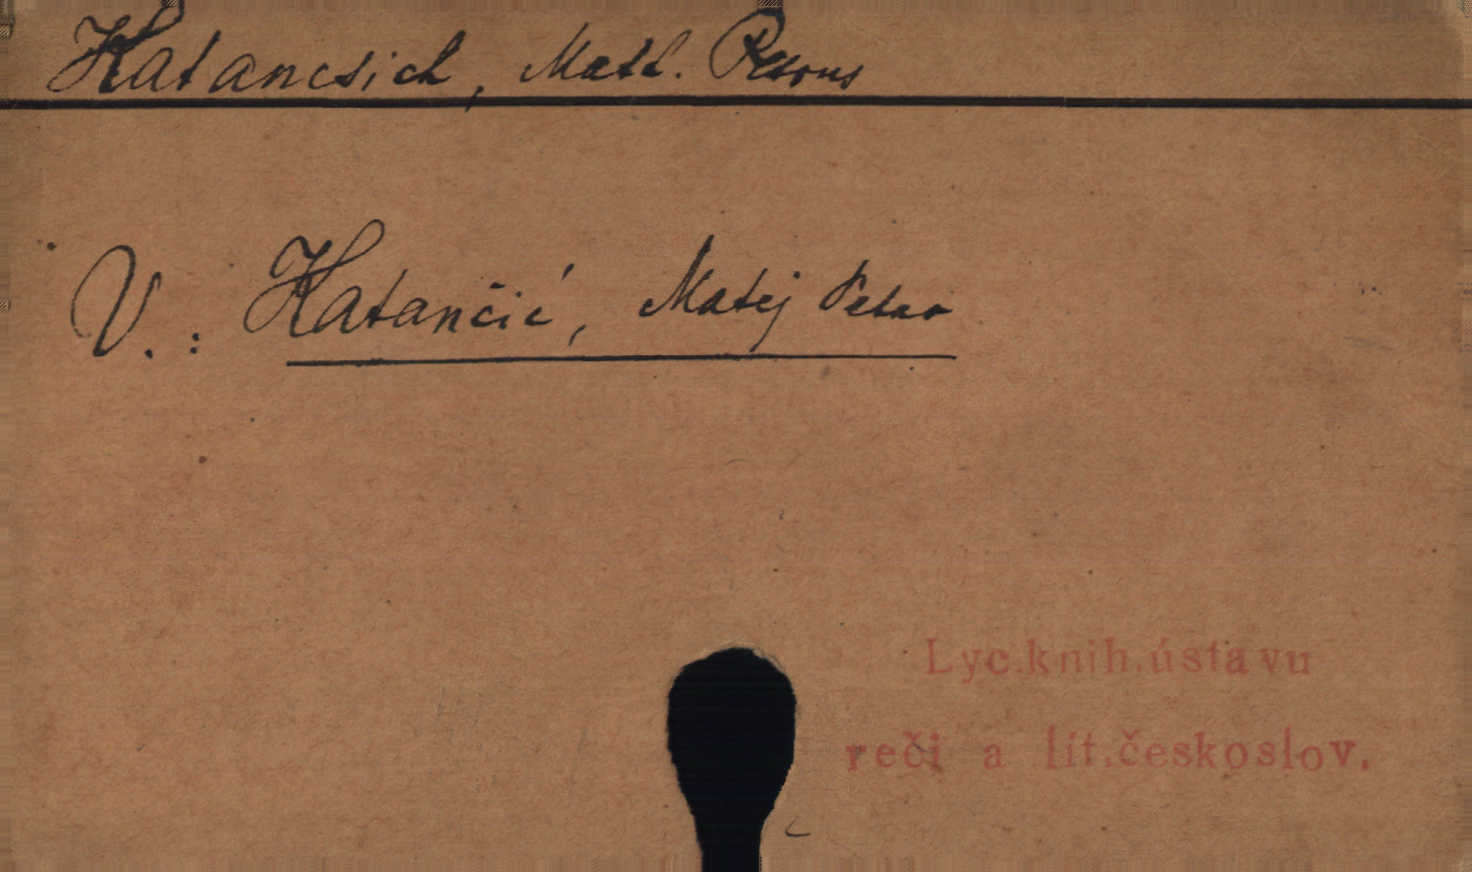 Katancsich, Math. Petrus
V.: Katančić, Matej Petar
Lyc.knih.ústavu
reči a lit.českoslov.